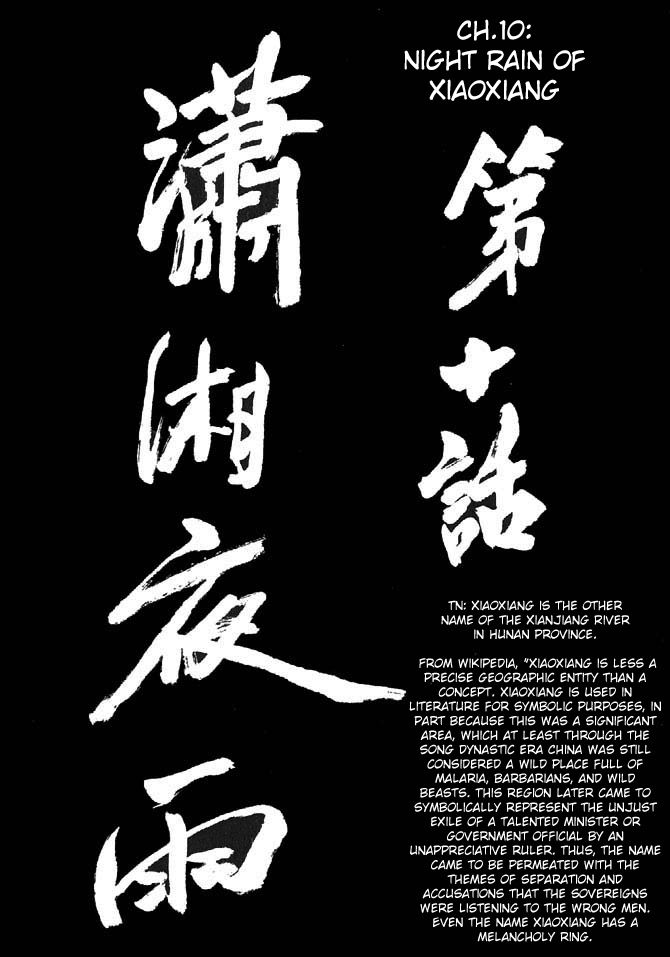 CH.10:
NIGHT RAIN OF
XIAOXIANG
第十話
瀟湘夜雨
TN: XIAOXIANG IS THE OTHER
NAME OF THE XIANJIANG RIVER
IN HUNAN PROVINCE.
FROM WIKIPEDIA, "XIAOXIANG IS LESS A
PRECISE GEOGRAPHIC ENTITY THAN A
CONCEPT. XIAOXIANG IS USED IN
LITERATURE FOR SYMBOLIC PURPOSES, IN
PART BECAUSE THIS WAS A SIGNIFICANT
AREA, WHICH AT LEAST THROUGH THE
SONG DYNASTIC ERA CHINA WAS STILL
CONSIDERED A WILD PLACE FULL OF
MALARIA, BARBARIANS, AND WILD
BEASTS. THIS REGION LATER CAME TO
SYMBOLICALLY REPRESENT THE UNJUST
EXILE OF A TALENTED MINISTER OR
GOVERNMENT OFFICIAL BY AN
UNAPPRECIATIVE RULER. THUS, THE NAME
CAME TO BE PERMEATED WITH THE
THEMES OF SEPARATION AND
ACCUSATIONS THAT THE SOVEREIGNS
WERE LISTENING TO THE WRONG MEN.
EVEN THE NAME XIAOXIANG HAS A
MELANCHOLY RING.